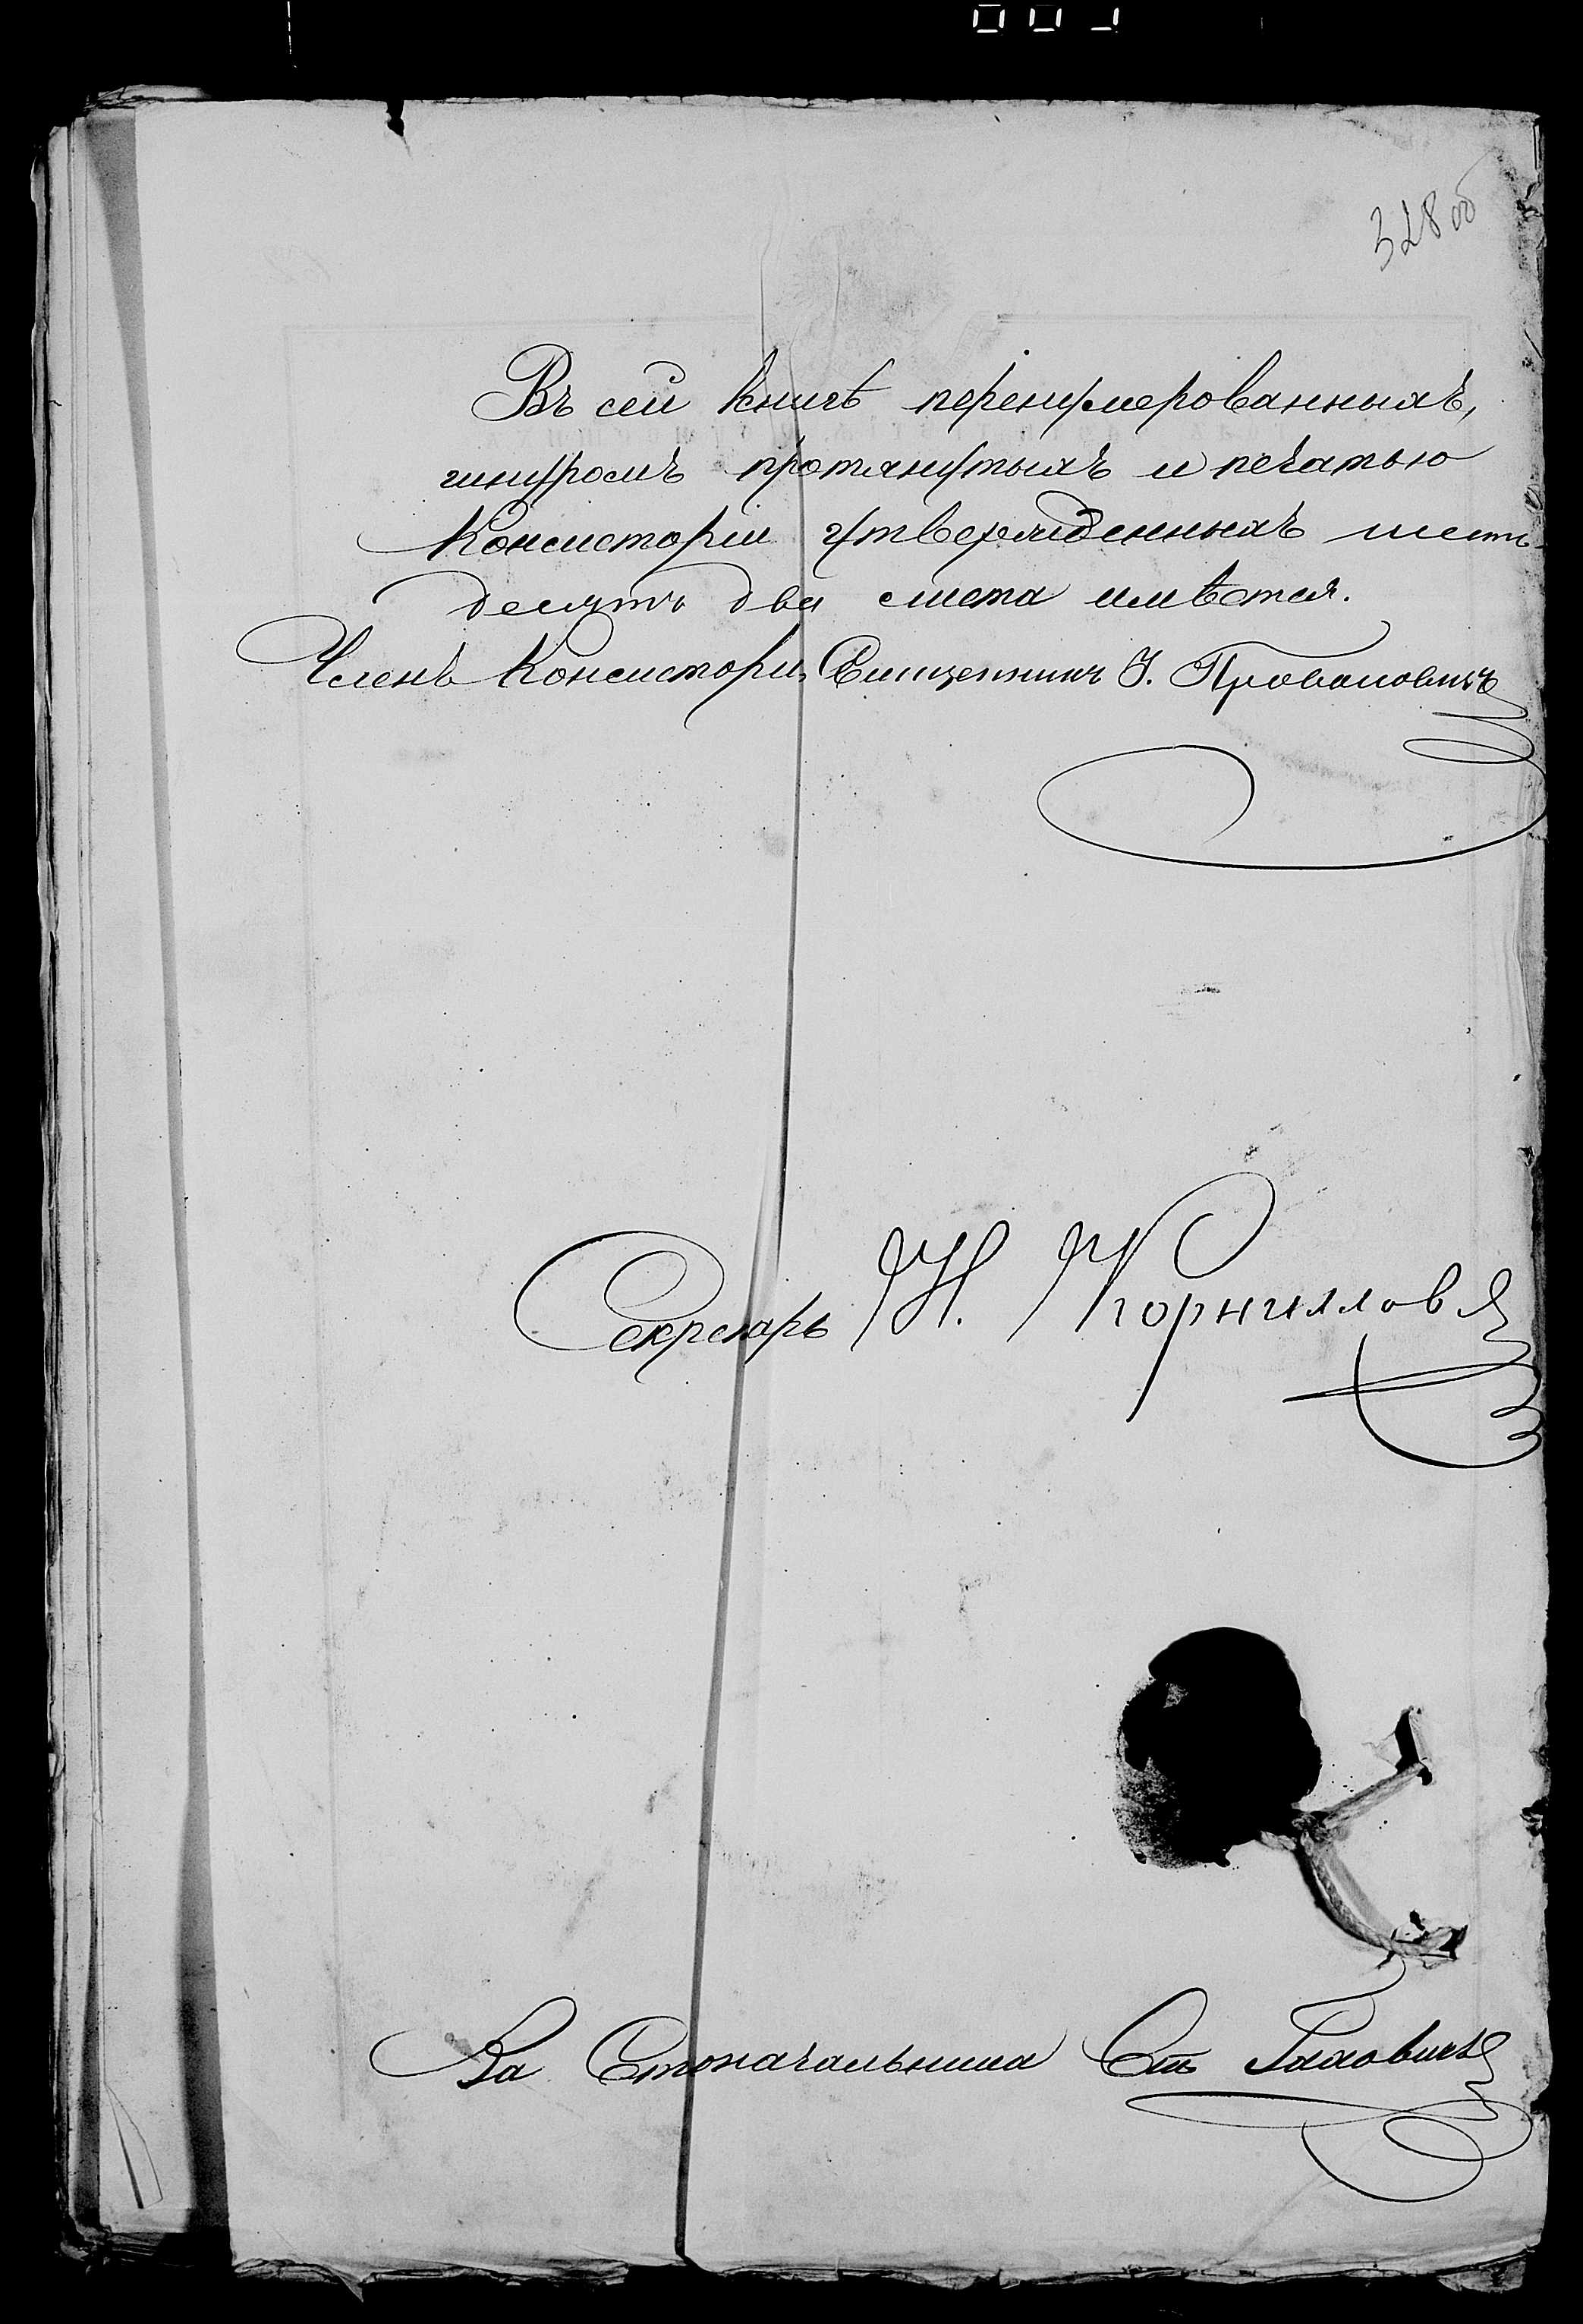 328 об
Въ сей книгѣ перенумерованныхъ,
шнуромъ протянутыхъ и печатью
Консисторіи утвержденныхъ шесть-
десятъ два листа имѣется.
Членъ Консисторіи, Священникъ І.
Секретарь Н. Корниловъ
За Столоначальника Ст.